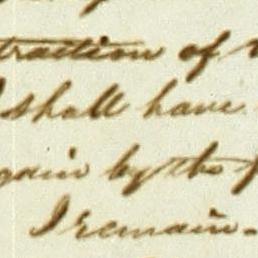 traction of
I shall have
gain by the
I remain